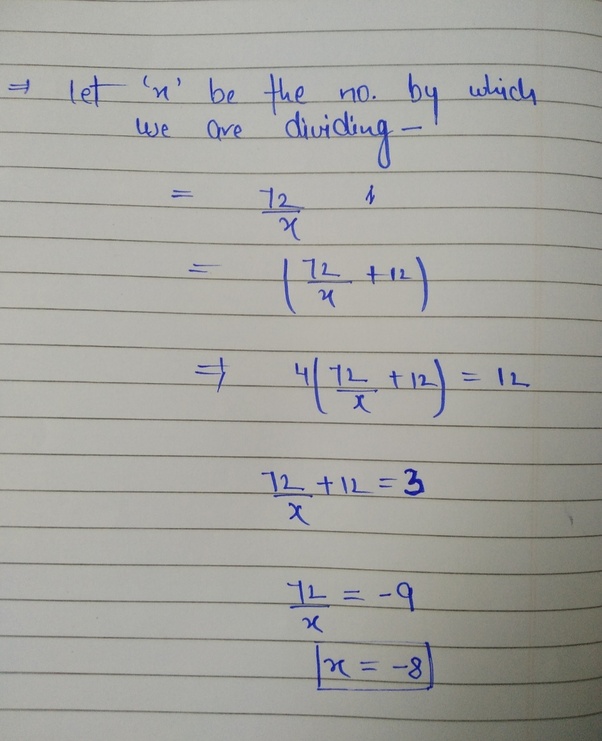 ⇒ let 'x' be the no. by which
we are dividing -
= 72/x
= (72/x + 12)
⇒ 4(72/x + 12) = 12
72/x + 12 = 3
72/x = -9
x = -8